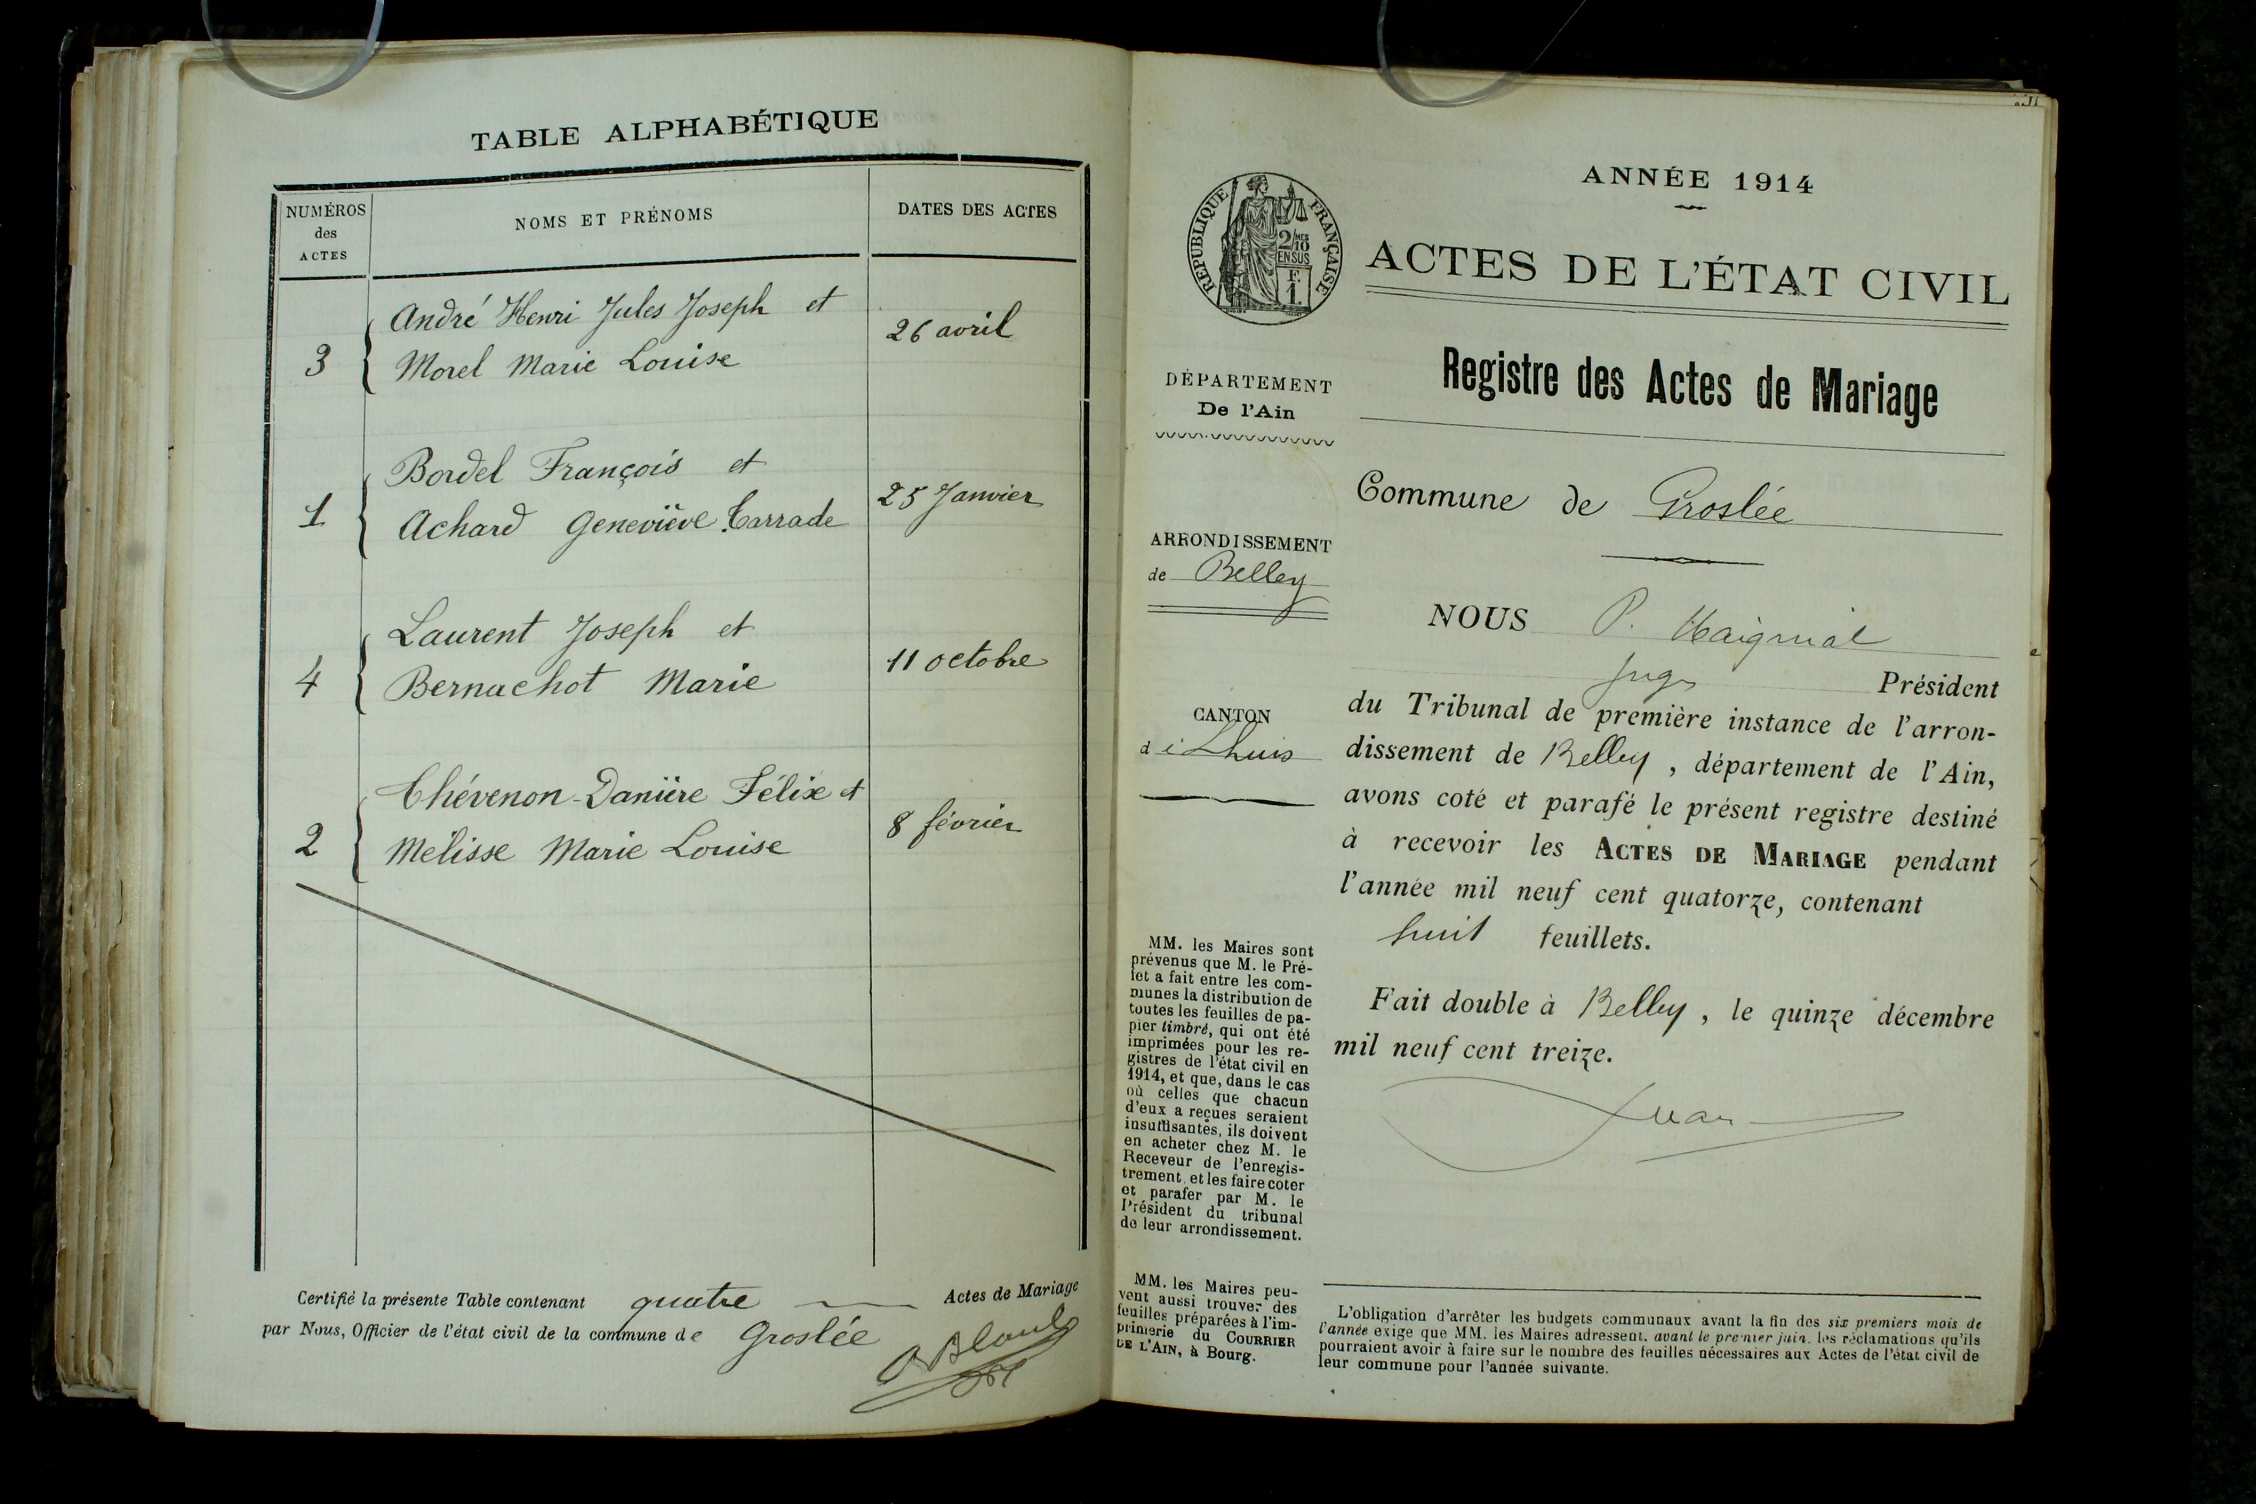 TABLE ALPHABÉTIQUE
NUMÉROS
des
ACTES
NOMS ET PRÉNOMS
DATES DES ACTES
André Henri Jules Joseph et
3
Morel Marie Louise
26 avril
Bordel François et
1
Achard Geneviève Tarrade
25 Janvier
Laurent Joseph et
4
Bernachot Marie
11 octobre
Thévenon-Danière Félix et
2
Mélisse Marie Louise
8 février
Certifié la présente Table contenant quatre Actes de Mariage
par Nous, Officier de l'état civil de la commune de Groslée
ANNÉE 1914
RÉPUBLIQUE FRANÇAISE
2/10 MES
EN SUS
F.
1.
ACTES DE L'ÉTAT CIVIL
Registre des Actes de Mariage
DÉPARTEMENT
De l'Ain
Commune de Groslée
ARRONDISSEMENT
de Belley
CANTON
de Lhuis
NOUS P.
Juge Président
du Tribunal de première instance de l'arron-
dissement de Belley, département de l'Ain,
avons coté et parafé le présent registre destiné
à recevoir les ACTES DE MARIAGE pendant
l'année mil neuf cent quatorze, contenant
huit feuillets.
Fait double à Belley, le quinze décembre
mil neuf cent treize.
MM. les Maires sont
prévenus que M. le Pré-
fet a fait entre les com-
munes la distribution de
toutes les feuilles de pa-
pier timbré, qui ont été
imprimées pour les re-
gistres de l'état civil en
1914, et que, dans le cas
où celles que chacun
d'eux a reçues seraient
insuffisantes, ils doivent
en acheter chez M. le
Receveur de l'enregis-
trement et les faire coter
et parafer par M. le
Président du tribunal
de leur arrondissement.
MM. les Maires peu-
vent aussi trouver des
feuilles préparées à l'im-
primerie du COURRIER
DE L'AIN, à Bourg.
L'obligation d'arrêter les budgets communaux avant la fin des six premiers mois de
l'année exige que MM. les Maires adressent, avant le premier juin, les réclamations qu'ils
pourraient avoir à faire sur le nombre des feuilles nécessaires aux Actes de l'état civil de
leur commune pour l'année suivante.